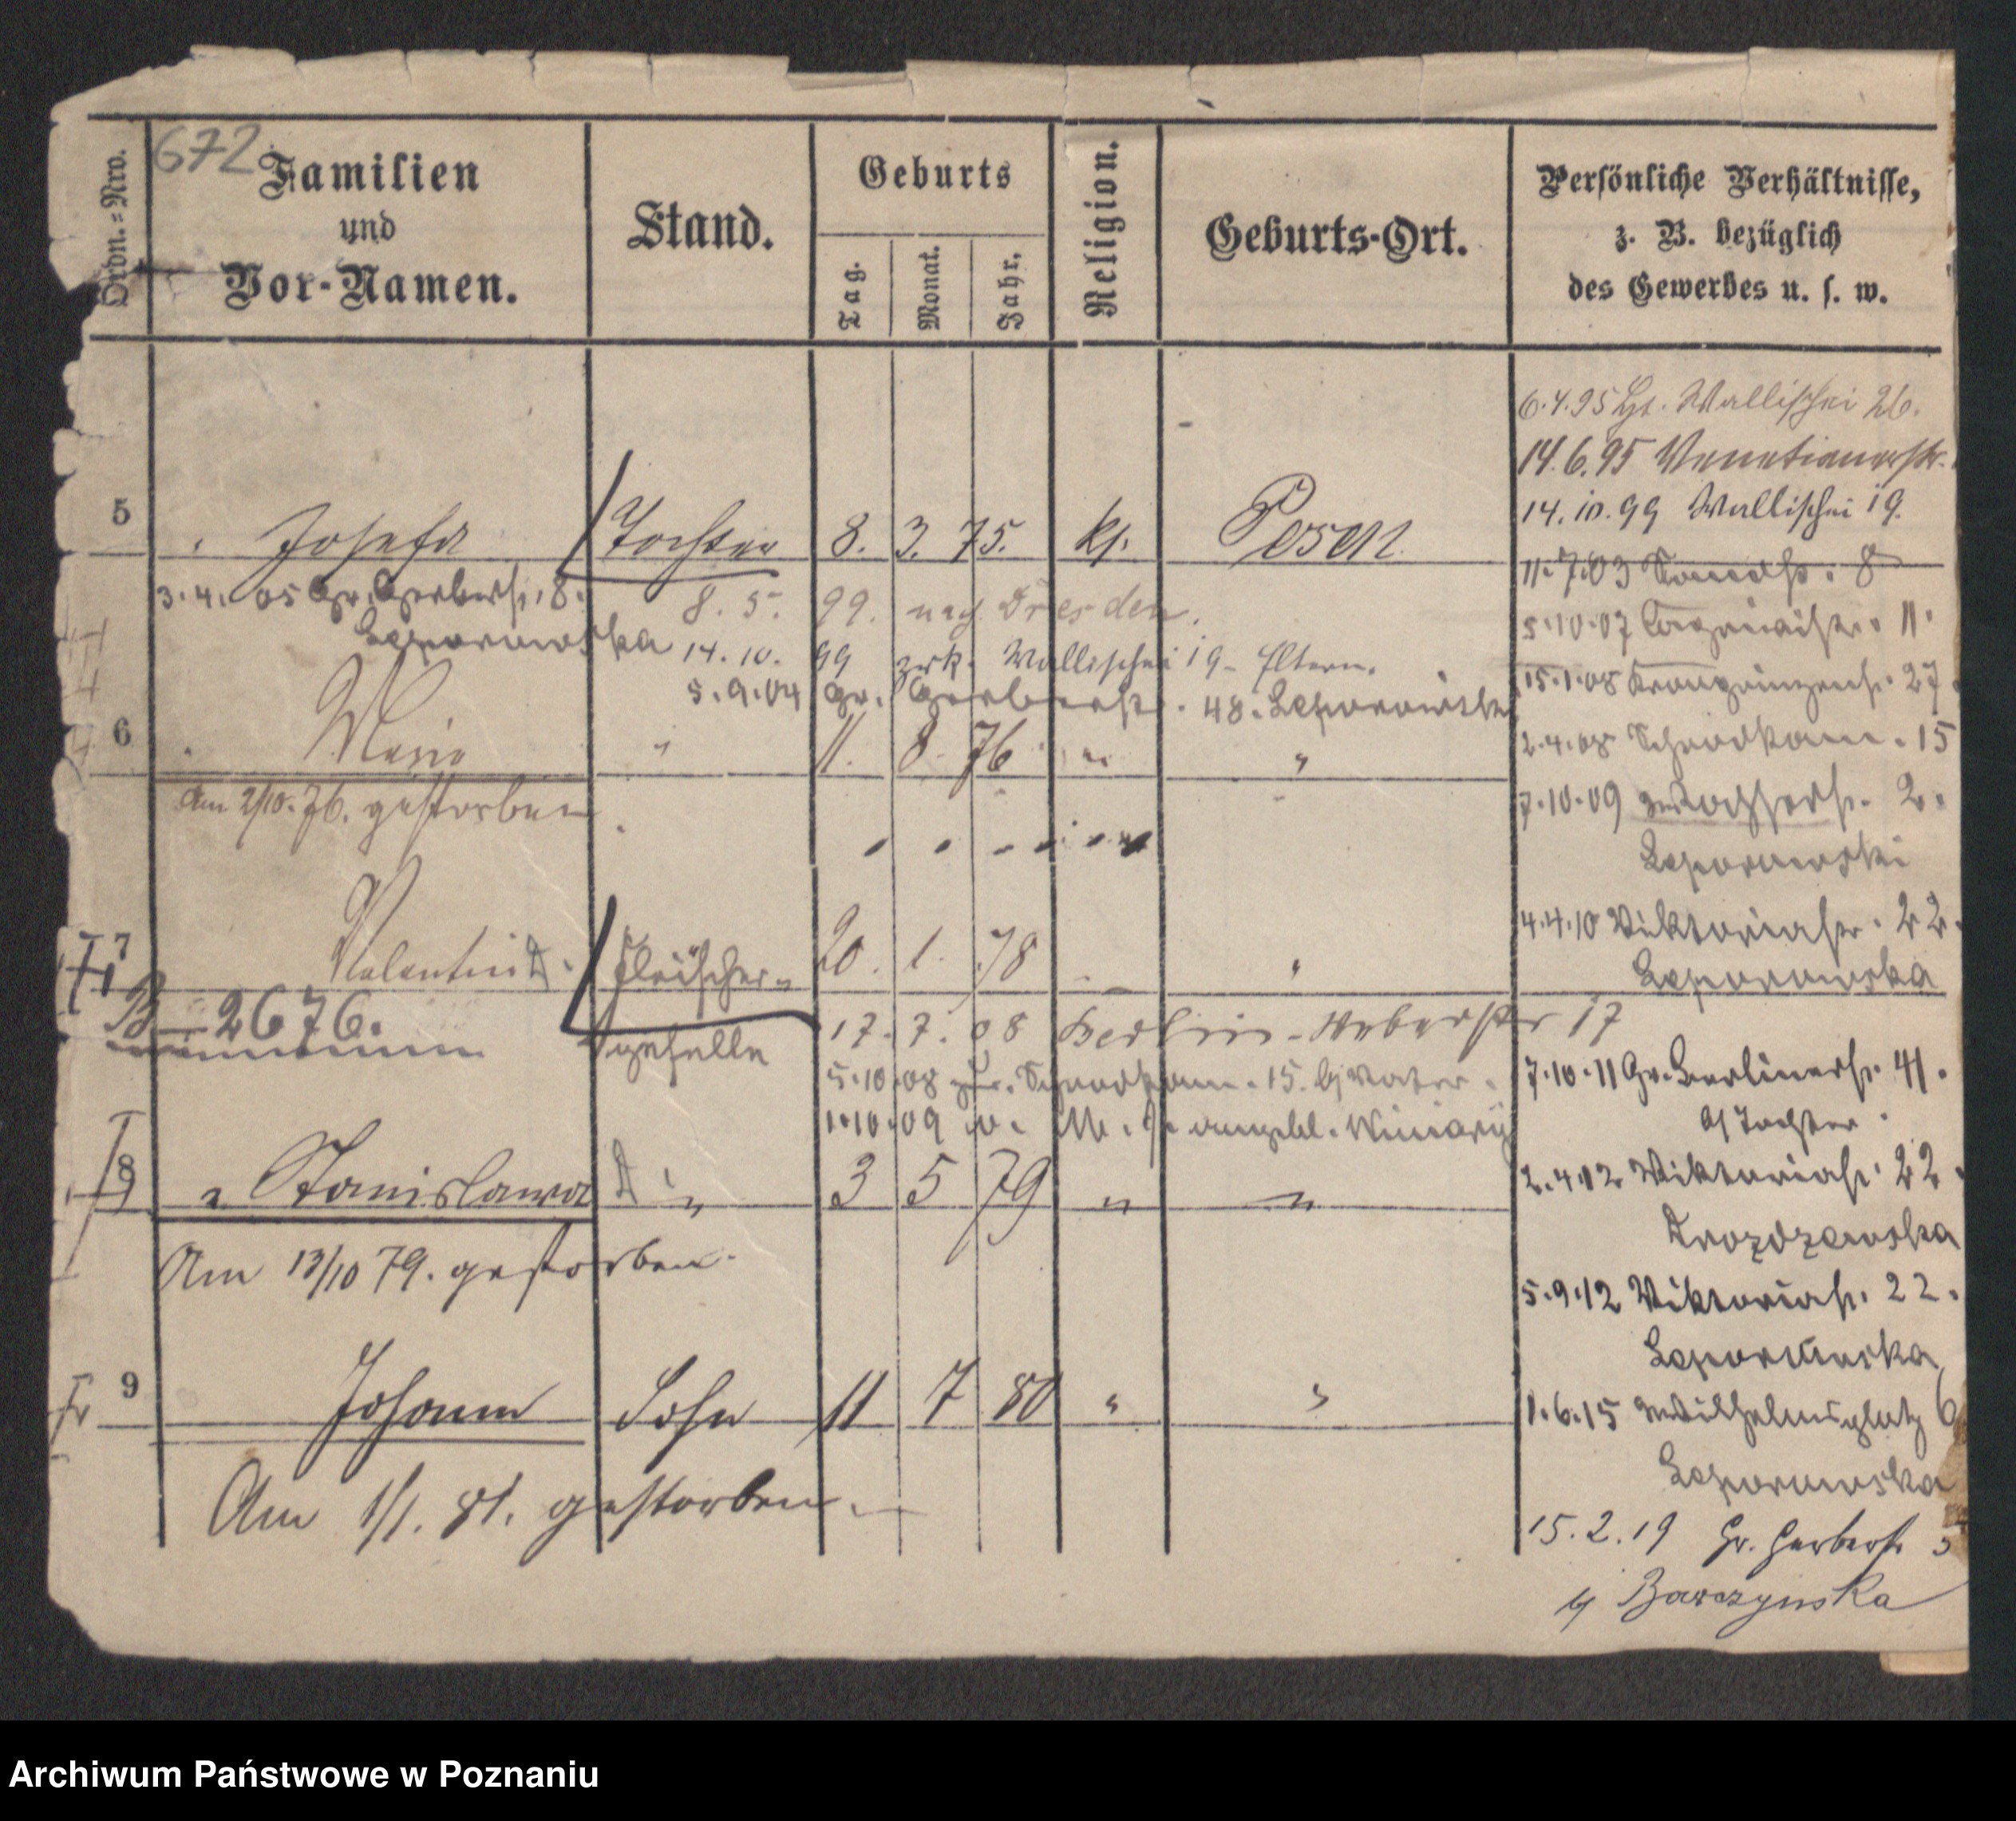 672
Ordn.=Nro.
Familien
und
Vor-Namen.
Stand.
Geburts
Tag.
Monat.
Jahr.
Religion.
Geburts-Ort.
Persönliche Verhältnisse,
z. B. bezüglich
des Gewerbes u. s. w.
6.4.95 Wallischei 26.
14.6.95 Venetianerstr.
14.10.99 Wallischei 19.
5 Josefa Tochter 8. 3. 75. kt. Posen
11.7.03 8
3.4.05 Gr. Gerberstr. 8.
8. 5. 99. nach Dresden.
5.10.07 11.
14. 10. 99 zrk. Wallischei 19 Eltern.
15.1.08 Kronprinzenstr. 27
5.9.04 Gr. Gerberstr. 48.
6 Maria " 11. 8. 76 " "
2.4.08 15
Am 2/10. 76. gestorben
7.10.09 2.
Leporowski
4.4.10 Viktoriastr. 22.
7 Valentin Fleischer- 20. 1. 78 "
Leporowska
B 2676.
geselle
17. 7. 08 Berlin - Weberstr 17
5.10.08 15. b/ Vater.
7.10.11 Gr. Berlinerstr. 41.
b/ Tochter
1.10.09 Winiary
8 " Stanislawa " 3 5 79 " "
2.4.12 Viktoriastr. 22
Drozdzewska
Am 13/10 79. gestorben.
5.9.12 Viktoriastr. 22.
Leporowska
9 Johann Sohn 11 7 80 " "
1.6.15 Wilhelmsplatz 6
Leporowska
Am 1/1. 81. gestorben.
15.2.19 Gr. Gerberstr 5
b/ Barczynska
Archiwum Państwowe w Poznaniu